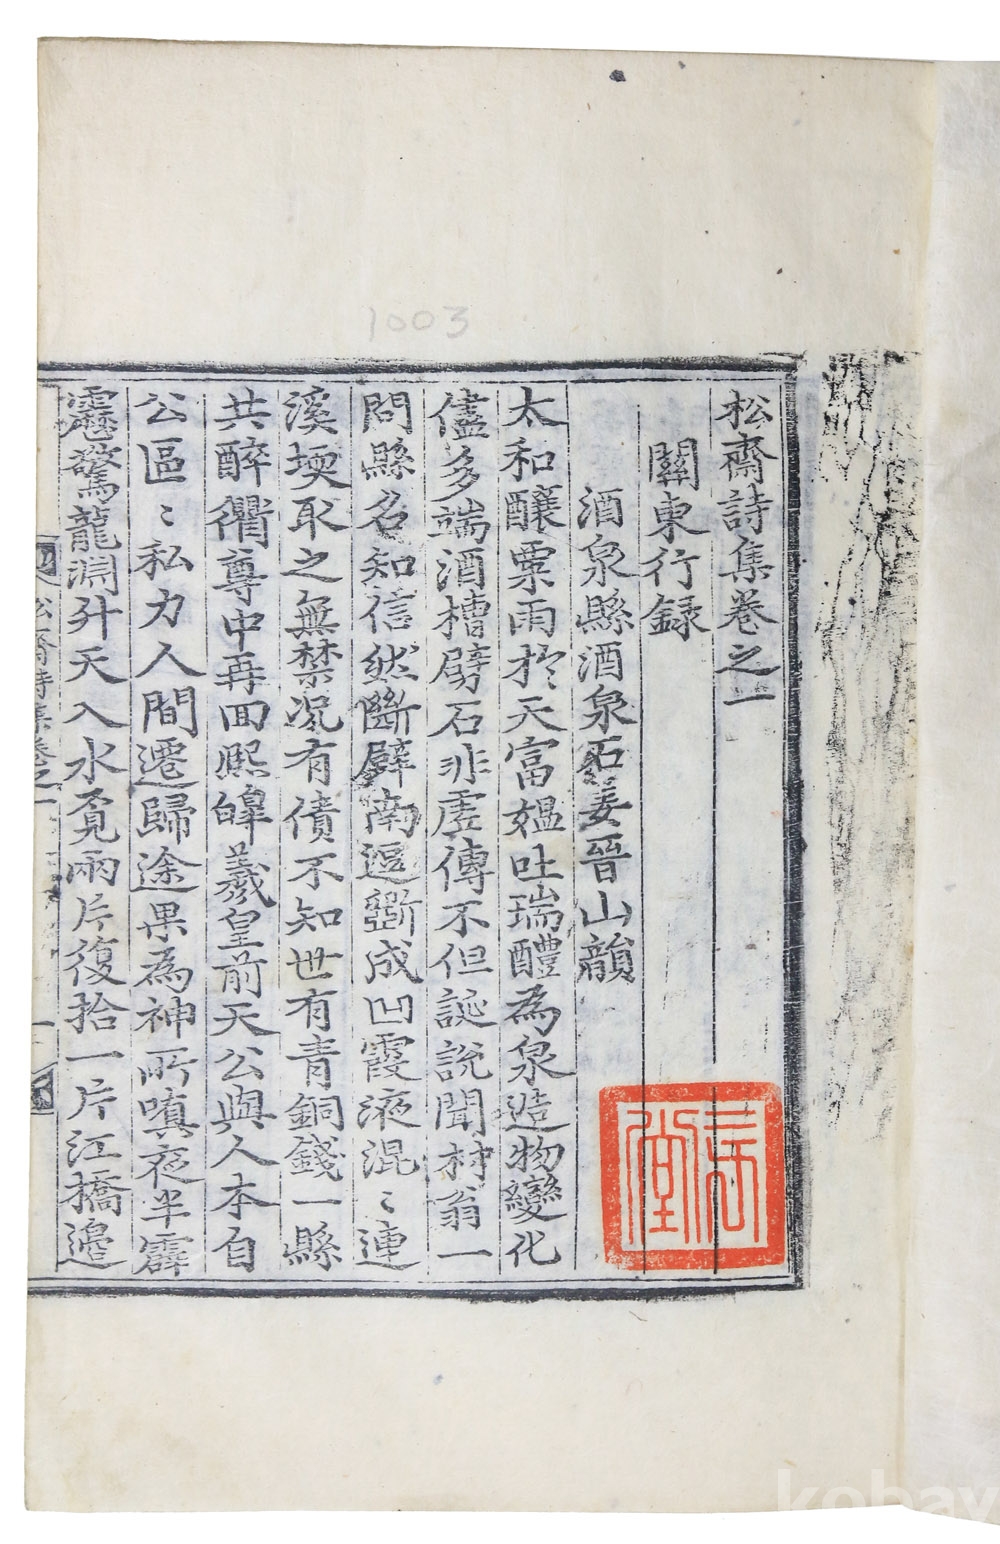 1003
松齋詩集卷之一
關東行録
酒泉縣酒泉石姜晉山韻
太和釀粟雨於天富媼吐瑞醴為泉造物變化
儘多端酒槽劈石非虛傳不但誕説聞村翁一
問縣名知信然斷壁南邊斲成凹霞液混〻連
溪堧取之無禁况有債不知世有青銅錢一縣
共醉衢尊中再回熈皥羲皇前天公與人本自
公區〻私力人間遷歸途果為神所嗔夜半霹
靂驚龍渊升天入水覔兩片復拾一片江橋邊
松齋詩集卷之一
一
kobay